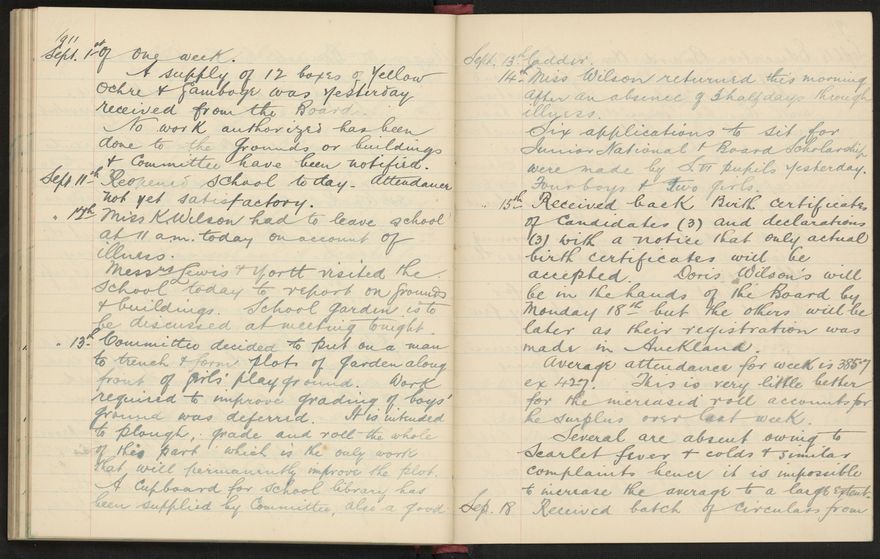 1911
Sept. 1st of one week.
A supply of 12 boxes of Yellow
Ochre & Gamboge was yesterday
received from the Board.
No work authorized has been
done to the grounds or buildings
& Committee have been notified.
Sept 11th Reopened school today. Attendance
not yet satisfactory.
" 12th Miss K Wilson had to leave school
at 11 a.m. today on account of
illness.
Messrs Lewis & North visited the
school today to report on grounds
& buildings. School garden is to
be discussed at meeting tonight.
" 13th Committee decided to put on a man
to trench & form plots of garden along
front of girls' playground. Work
required to improve grading of boys'
ground was deferred. It is intended
to plough, grade and roll the whole
of this part which is the only work
that will permanently improve the plot.
A Cupboard for school library has
been supplied by Committee, also a good
Sept. 13th ladder.
14th Miss Wilson returned this morning
after an absence of 3 half days through
illness.
Six applications to sit for
Junior National & Board Scholarship
were made by S.VI pupils yesterday.
Four boys & two girls.
" 15th Received back Birth certificates
of Candidates (3) and declarations
(3) with a notice that only actual
birth certificates will be
accepted. Doris Wilson's will
be in the hands of the Board by
Monday 18th but the others will be
later as their registration was
made in Auckland.
Average attendance for week is
ex 427. This is very little better
for the increased roll accounts for
the surplus over last week.
Several are absent owing to
Scarlet fever & colds & similar
complaints hence it is impossible
to increase the average to a large extent.
Sep. 18 Received batch of circulars from